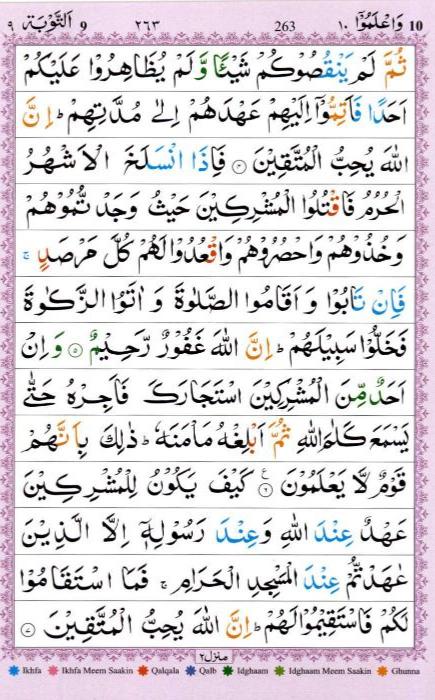 10 وَاعْلَمُوْۤا ١٠ 263 ٢٦٣ 9 اَلتَّوْبَة ٩
ثُمَّ لَمْ يَنْقُصُوْكُمْ شَيْـًٔا وَّلَمْ يُظَاهِرُوْا عَلَيْكُمْ
اَحَدًا فَاَتِمُّوْۤا اِلَيْهِمْ عَهْدَهُمْ اِلٰى مُدَّتِهِمْ ؕ اِنَّ
اللّٰهَ يُحِبُّ الْمُتَّقِيْنَ ۝۴ فَاِذَا انْسَلَخَ الْاَشْهُرُ
الْحُرُمُ فَاقْتُلُوا الْمُشْرِكِيْنَ حَيْثُ وَجَدْتُّمُوْهُمْ
وَخُذُوْهُمْ وَاحْصُرُوْهُمْ وَاقْعُدُوْا لَهُمْ كُلَّ مَرْصَدٍ ۚ
فَاِنْ تَابُوْا وَاَقَامُوا الصَّلٰوةَ وَاٰتَوُا الزَّكٰوةَ
فَخَلُّوْا سَبِيْلَهُمْ ؕ اِنَّ اللّٰهَ غَفُوْرٌ رَّحِيْمٌ ۝۵ وَاِنْ
اَحَدٌ مِّنَ الْمُشْرِكِيْنَ اسْتَجَارَكَ فَاَجِرْهُ حَتّٰى
يَسْمَعَ كَلٰمَ اللّٰهِ ثُمَّ اَبْلِغْهُ مَاْمَنَهٗ ؕ ذٰلِكَ بِاَنَّهُمْ
قَوْمٌ لَّا يَعْلَمُوْنَ ۝۶ ع كَيْفَ يَكُوْنُ لِلْمُشْرِكِيْنَ
عَهْدٌ عِنْدَ اللّٰهِ وَعِنْدَ رَسُوْلِهٖۤ اِلَّا الَّذِيْنَ
عٰهَدْتُّمْ عِنْدَ الْمَسْجِدِ الْحَرَامِ ۚ فَمَا اسْتَقَامُوْا
لَكُمْ فَاسْتَقِيْمُوْا لَهُمْ ؕ اِنَّ اللّٰهَ يُحِبُّ الْمُتَّقِيْنَ ۝۷
منزل ٢
Ikhfa Ikhfa Meem Saakin Qalqala Qalb Idghaam Idghaam Meem Saakin Ghunna